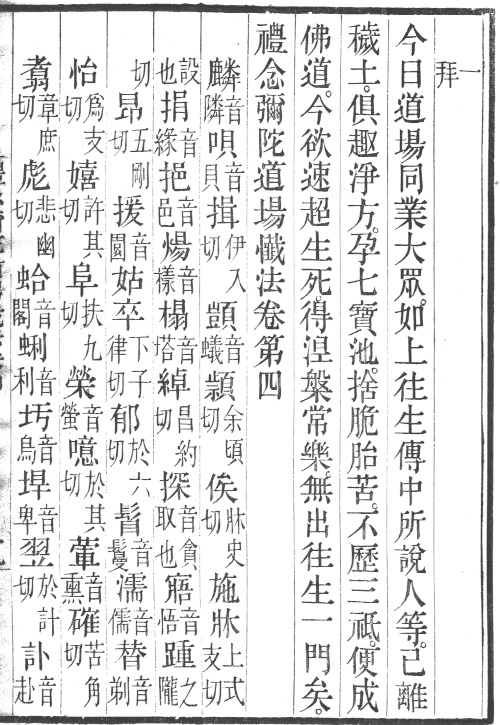 一拜
今日道場同業大眾。如上往生傳中所說人等。已離
穢土。俱趣淨方。孕七寶池。捨脆胎苦。不歷三祇。便成
佛道。今欲速超生死。得涅槃常樂。無出往生一門矣。
禮念彌陀道場懺法卷第四
麟音隣唄音貝揖伊入切顗音蟻潁余頃切俟牀史切施牀上式支切
設也捐音緣挹音邑煬音樣榻音塔綽昌約切探音貪取也寤音悟踵之隴
切昂五剛切援音園姑卒下子律切郁於六切音鬢濡音儒替音剃
怡為支切嬉許其切阜扶九切榮音螢噫於其切葷音熏確苦角切
翥章庶切彪悲幽切蛤音閣蜊音利圬音烏埤音卑翌於計切訃音赴